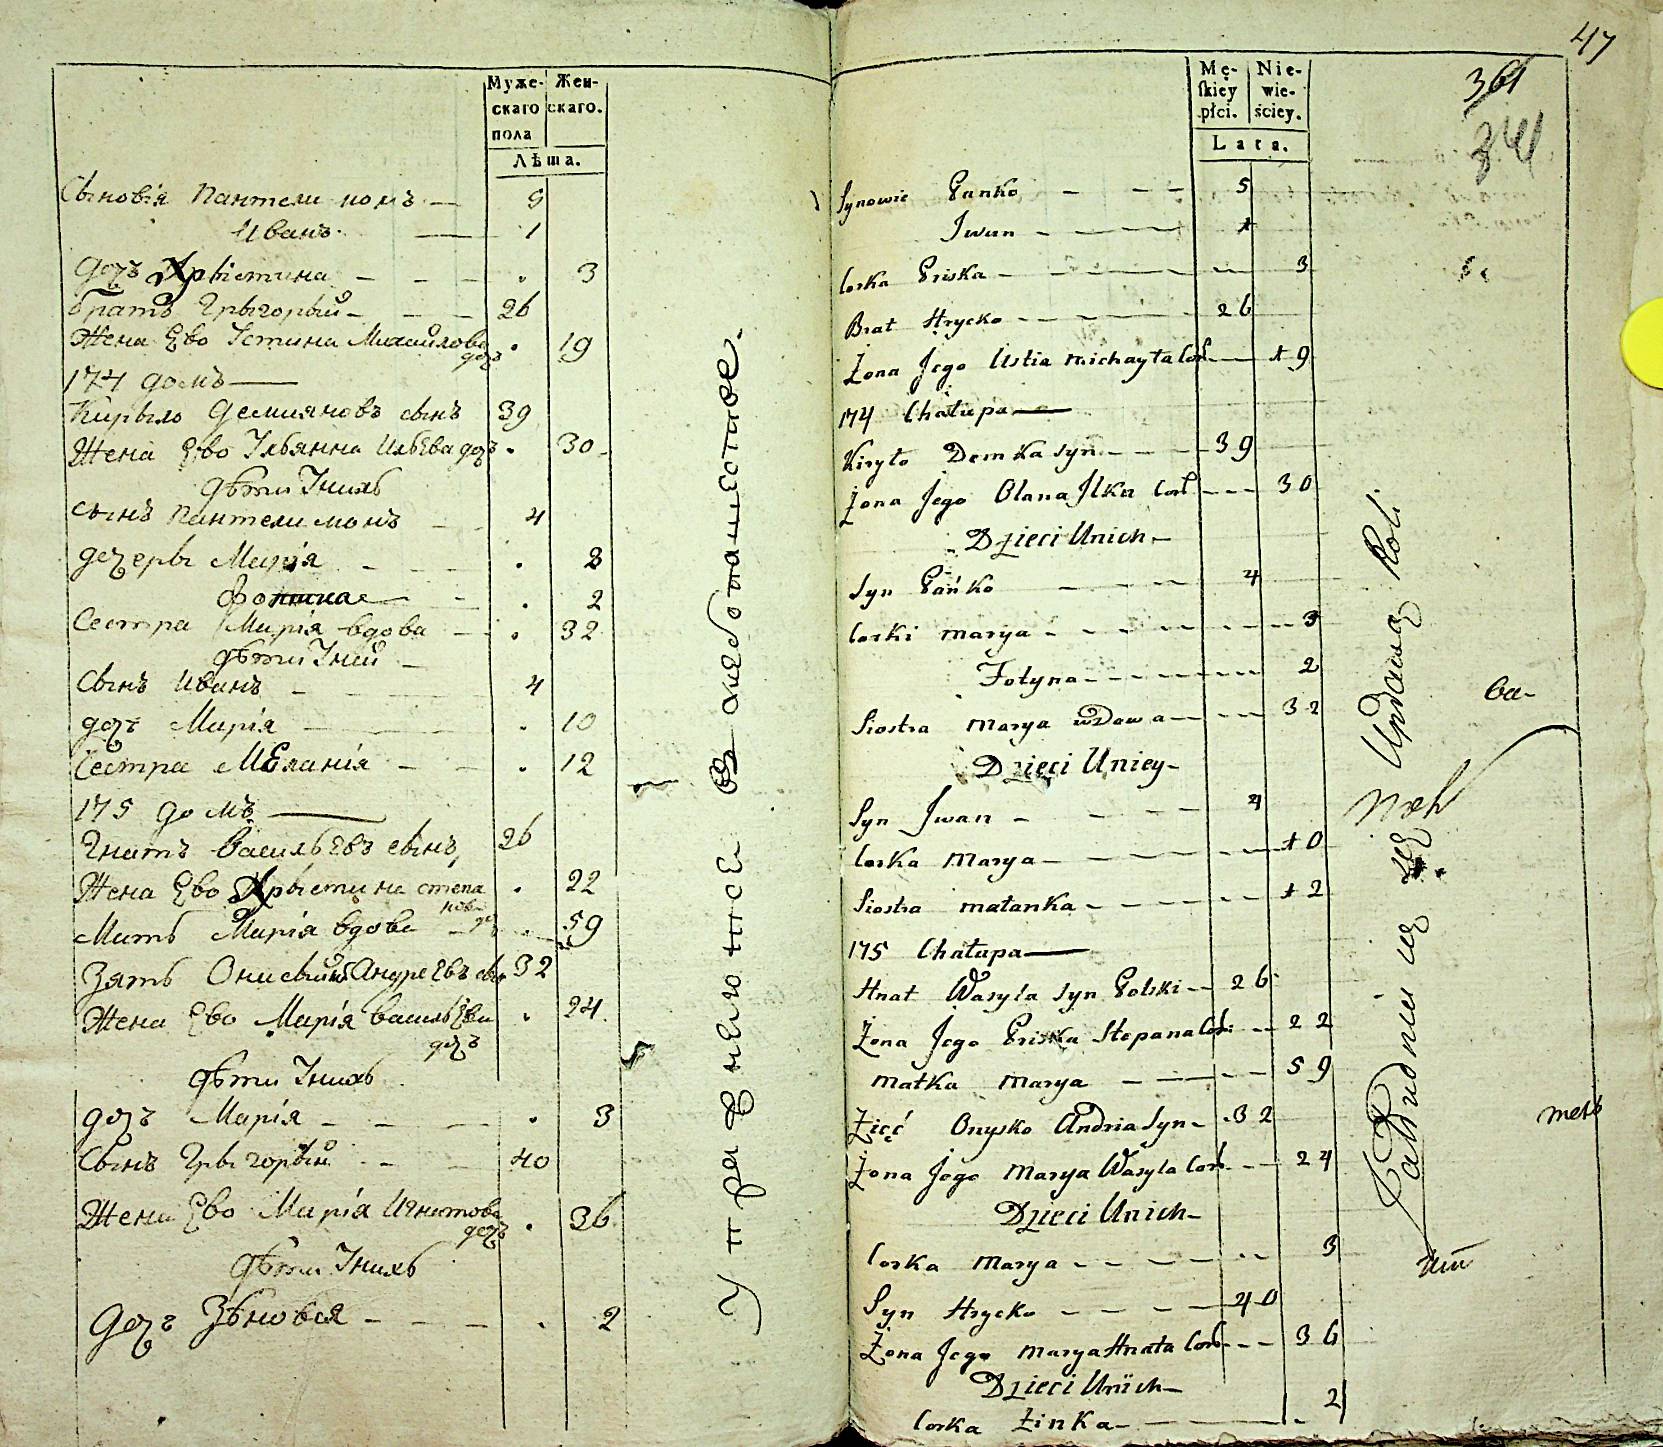 Муже- Жен-
скаго скаго.
пола
Лѣта.
Сыновія Пантелимонъ — 5
Иванъ — 1
дочъ Хрыстина — — — . 3
братъ Грыгорый — — — 26
Жена Ево Істина Михайлова . 19
дочъ
174 домъ —
Кирыло Демияновъ сынъ 39
Жена Ево Ульянна Ильева дочъ . 30
дѣти Унихъ
сынъ Пантелимонъ — — 4
дочеры Марія — — — . 3
Фотина — — . 2
Сестра Марія вдова — . 32
дѣти Уней —
Сынъ Иванъ — — 4
дочъ Марія — — . 10
Сестра Меланія — — . 12
175 домъ —
Гнатъ Васильевъ сынъ 26
Жена Ево Хрыстина степа . 22
нов-
дч
Мать Марія вдова — . 59
Зять Онисый Андреевъ сынъ 32
Жена Ево Марія васильева . 24
дочъ
дѣти Унихъ
дочъ Марія — — — . 3
Сынъ Грыгорый — — 40
Жена Ево Марія Игнатова . 36
дочъ
дѣти Унихъ
дочъ Зѣновія — — — . 2
47
361
341
Mę- Nie-
skiey wie-
płci. ściey.
Lata.
Synowie Panko — — — 5
Jwan — — — 1
Corka Priska — — — 3
Brat Hrycko — — — 26
Żona Jego Ustia Michayła Cor — 19
174 Chałupa —
Kiryło Demka Syn — — 39
Żona Jego Olana Jlka Cor — — 30
Dzieci Unich —
Syn Pańko — — — 4
Corki Marya — — — 3
Fotyna — — — 2
Siostra Marya wdowa — — 32
Dzieci Uniey —
Syn Jwan — — — 4
Corka Marya — — — 10
Siostra Małanka — — — 12
175 Chałupa —
Hnat Wasyla Syn Polski — 26
Żona Jego Priska Stepana Cor — 22
Matka Marya — — — 59
Zięć Onysko Andria Syn — 32
Żona Jego Marya Wasyla Cor — 24
Dzieci Unich —
Corka Marya — — — 3
Syn Hrycko — — — 40
Żona Jego Marya Hnata Cor — — 36
Dzieci Unich —
Corka Zinka — — — 2